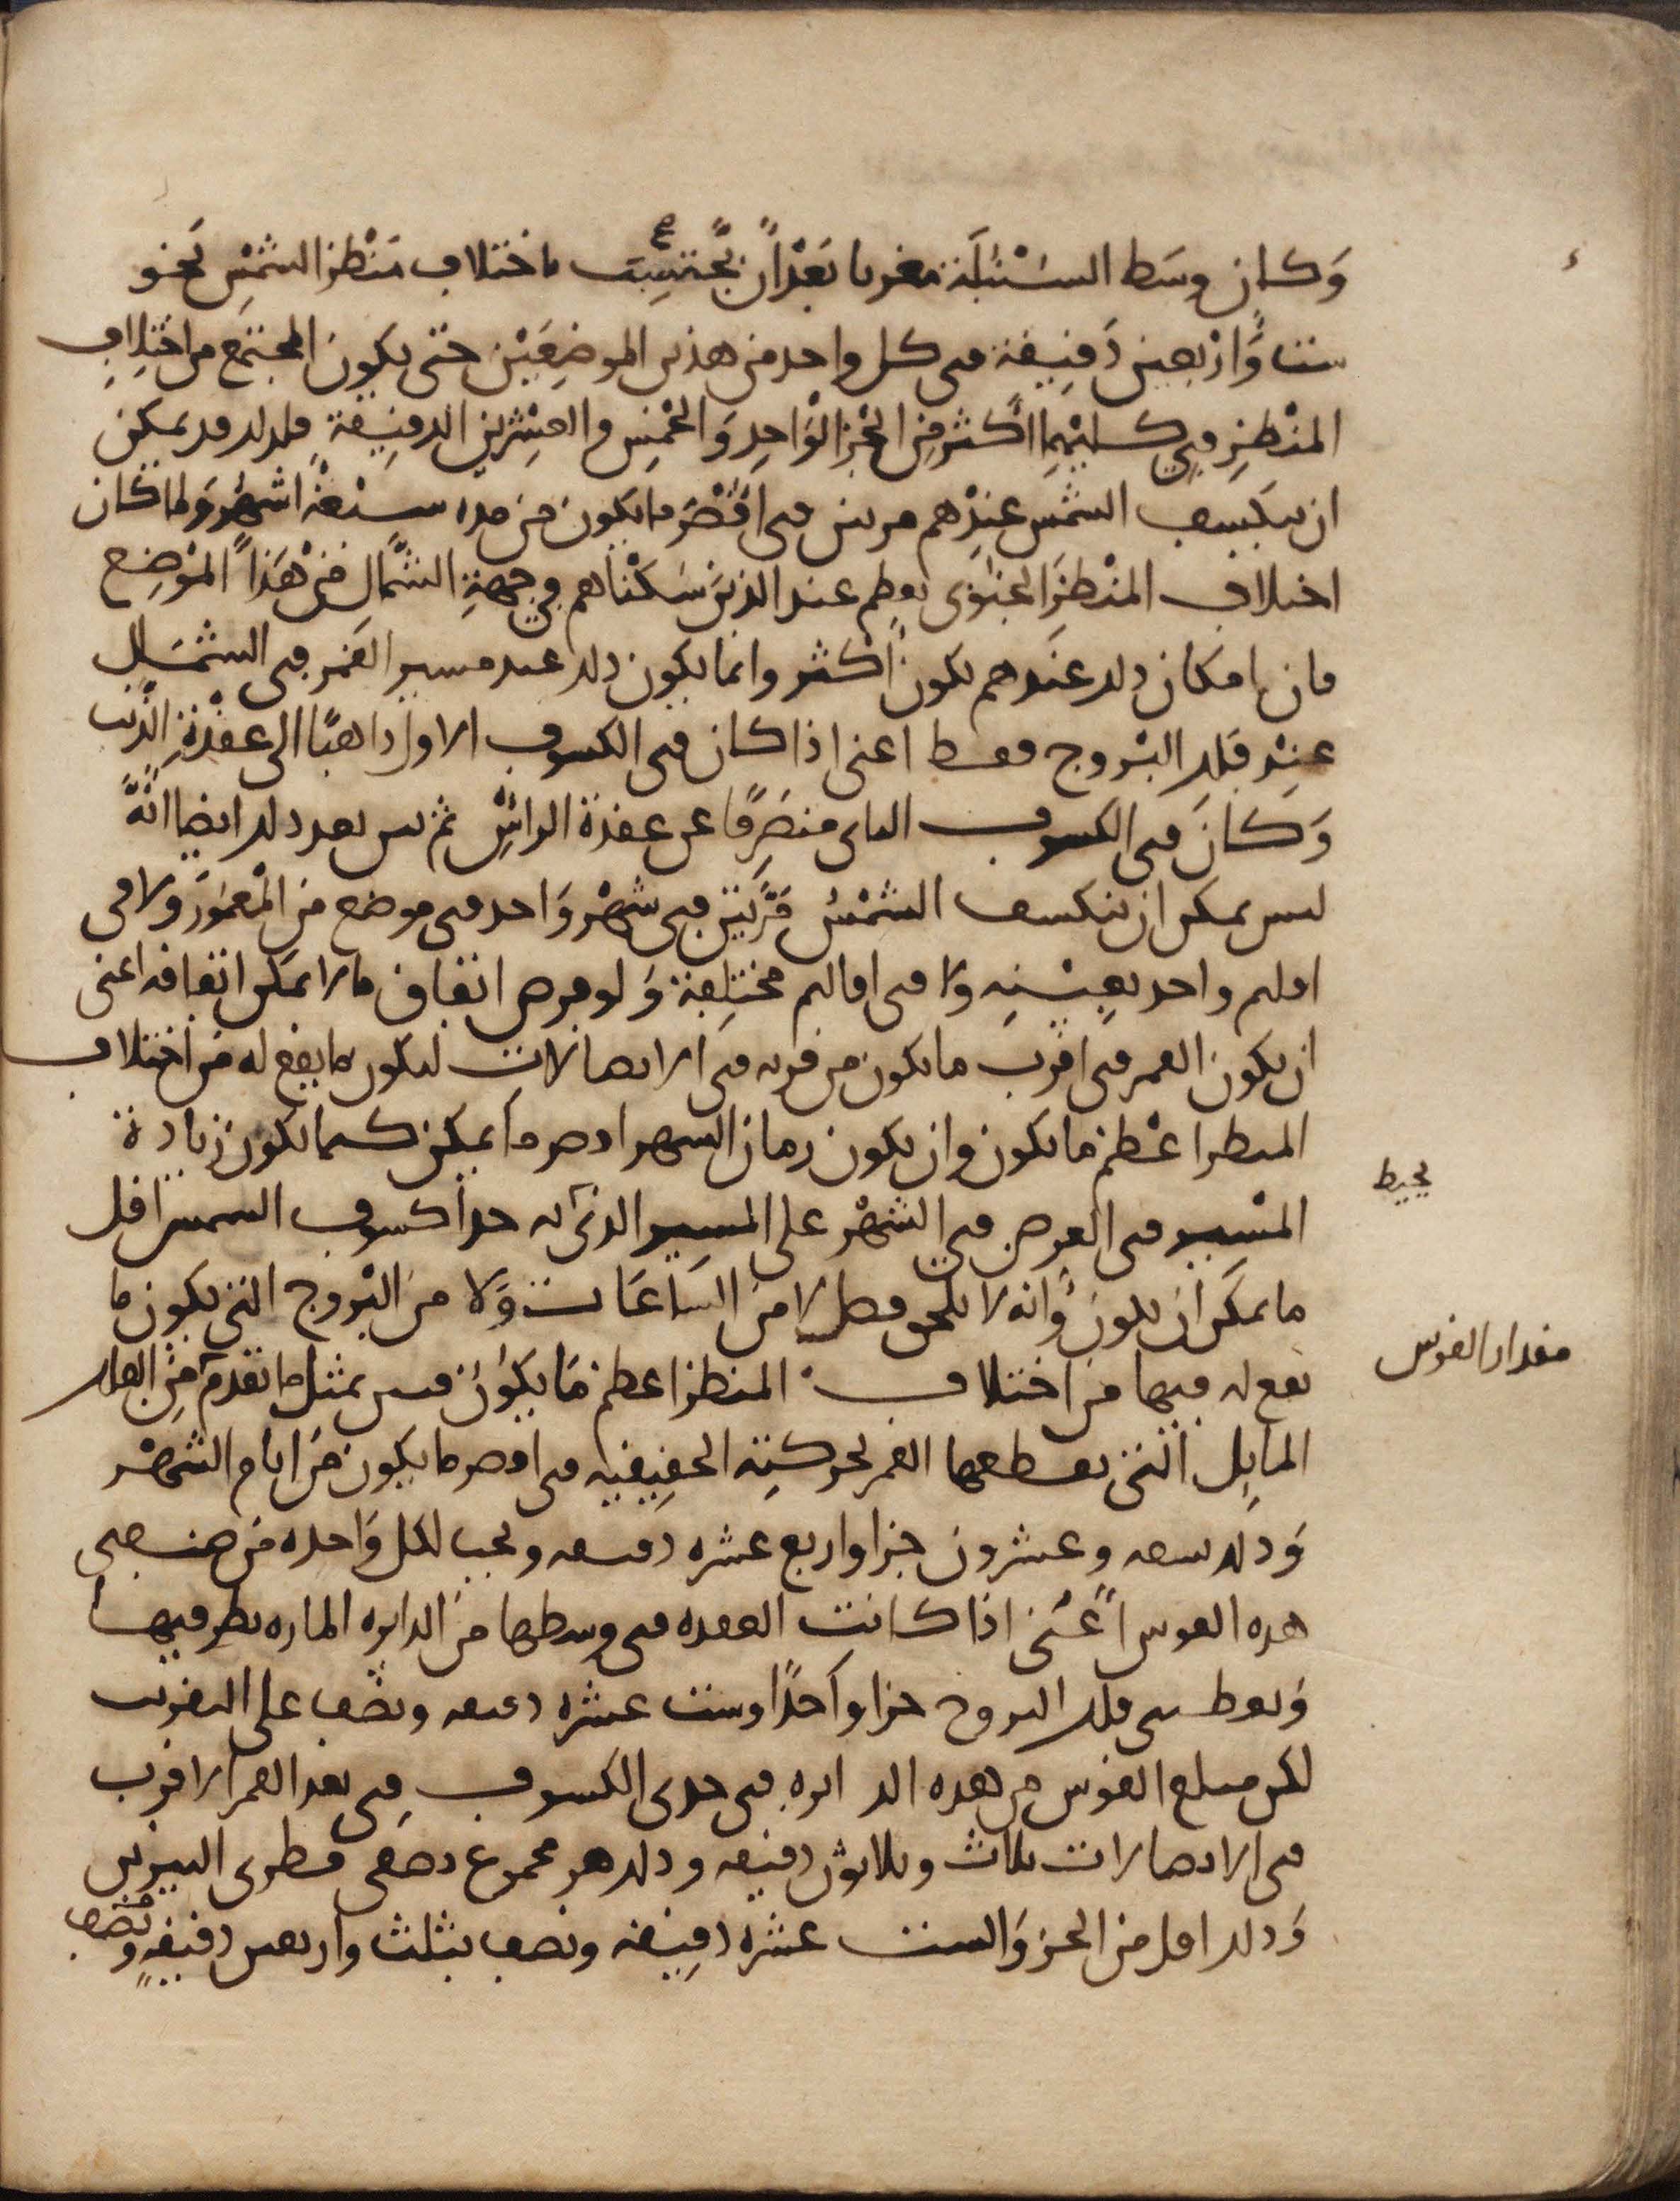 وَكان وسَط السنْبلَة مغربا بَعْد ان يحتسب باختلاف مَنْظر الشمْس نحْو
ست وَارْبعين دَقِيقة فى كل واحد من هذين الموضِعَيْن حتى يكون المجتمع من اختِلافِ
المنْظرِ فِي كليْهِما اكْثر مِن الجُزْ الوَاحِدِ وَالخمْسِ والعِشْرين الدقِيقةِ فلذلك قد يمكن
ان تنكسف الشمْس عِنْدهم مرتين فى اقْصَر ما يكون من مده سبْعة اشهُر وَلما كان
اختلاف المنْظر الجنوبى يعظم عند الذين سَكْناهم فِي جهةِ الشمال مِنْ هَذا المَوْضِع
فان امكان ذلك عنْدهم يكون اكْثر وانما يكون ذلك عند مسير القمر فى الشمَال
عِنْد فلك البُروج فقط اعنى اذا كان فى الكسوف الاول ذاهبًا الى عقْدةِ الذنب
وَكانَ فى الكسوف الثانى منصَرِفًا عن عقدة الراسِ ثم نبين بعد ذلك ايضا انهُ
ليس يمكن ان تنكسف الشمْسُ مَرتين فى شهْر وَاحد فى موضع من المْعمور وَلا فى
اقليم واحد بعِيْنهِ ولا فى اقاليم مختلِفة وَلو فرض اتفاق ما لا يمكن اتفاقه اعنى
ان يكون القمر فى اقرب ما يكون من قربه فى الاتصالات ليكون ما يقع له من اختلاف
المنظر اعْظم ما يكون وان يكون زمان الشهر اقصر ما يمكن كيما يكون زيادة
المسْير فى العرض فى الشهْر على المسير الذى له حدا كسوف الشمس اقل
ما يمكن ان يكون وَانه لا يلحق فصل لا من السَاعَات وَلا من البُروج التى يكون ما
يقع له فيها من اختلاف المنظر اعظم مَا يكون فنبين بمثل ما تقدم من الفلك
المايل التى يقطعها القمر لحركتِه الحقيقيه فى اقصر ما يكون من ايام الشهْر
وَذلك تسعه وعشرون جزا واربع عشره دقيقه ويجب لكل وَاحده من نصفى
هذه القوس اعْنى اذا كانت العقده فى وسطها من الدايره الماره بطرفيها
وَبقطبى فلك البروج جزا واحدًا وست عشره دقيقه ونصف على التقريب
لكن مبلغ القوس من هذه الدايره فى حدى الكسوف فى بعد القمر الاقرب
فى الاتصالات ثلاث وثلاثون دقيقه وذلك هو مجموع نصفى قطرى النيرين
وَذلك اقل من الجز وَالست عشره دقيقه ونصف بثلث واربعين دقيقه ونصف
يحيط
مقدار القوس